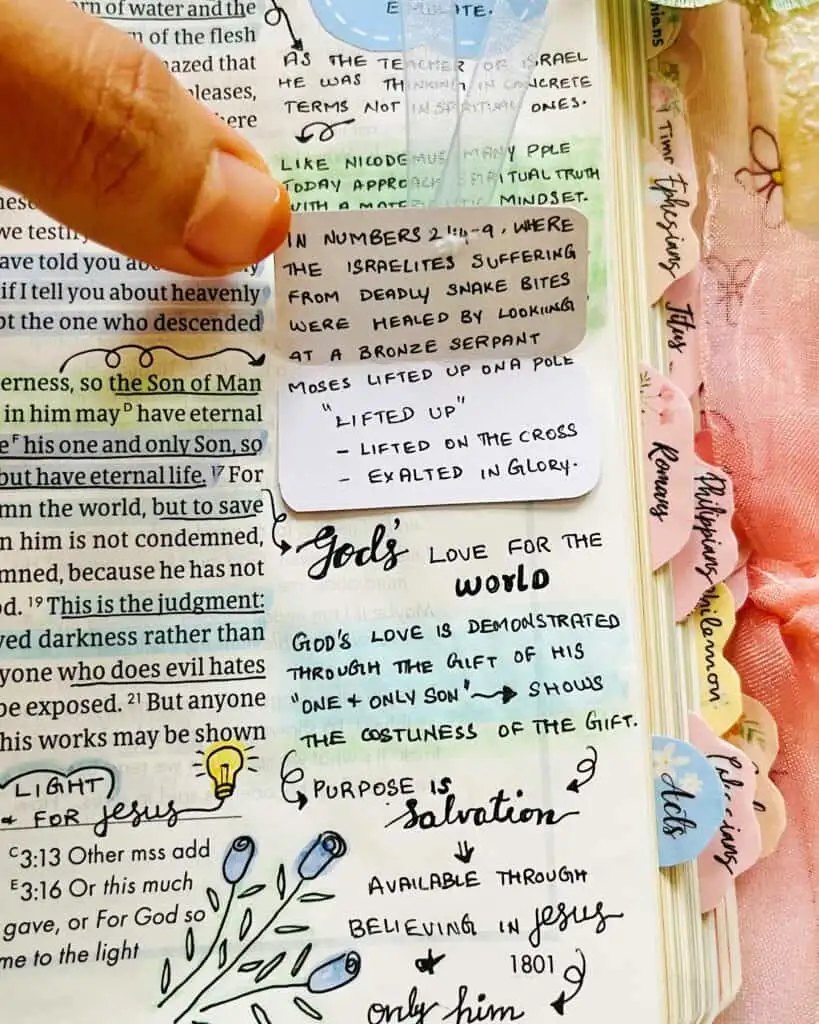 rn of water and the
n of the flesh
nazed that
pleases,
here
we testify
ave told you
if I tell you about heavenly
pt the one who descended
erness, so the Son of Man
in him may D have eternal
e F his one and only Son, so
but have eternal life. 17 For
mn the world, but to save
n him is not condemned,
mned, because he has not
d. 19 This is the judgment:
ved darkness rather than
yone who does evil hates
be exposed. 21 But anyone
his works may be shown
LIGHT
+ FOR Jesus
C 3:13 Other mss add
E 3:16 Or this much
gave, or For God so
me to the light
AS THE TEACHER OF ISRAEL
HE WAS THINKING IN CONCRETE
TERMS NOT IN SPIRITUAL ONES.
LIKE NICODEMUS MANY PPLE
TODAY APPROACH SPIRITUAL TRUTH
WITH A MINDSET.
IN NUMBERS 21:4-9, WHERE
THE ISRAELITES SUFFERING
FROM DEADLY SNAKE BITES
WERE HEALED BY LOOKING
AT A BRONZE SERPANT
MOSES LIFTED UP ON A POLE
"LIFTED UP"
- LIFTED ON THE CROSS
- EXALTED IN GLORY.
God's LOVE FOR THE
world
GOD'S LOVE IS DEMONSTRATED
THROUGH THE GIFT OF HIS
"ONE + ONLY SON" → SHOWS
THE COSTLINESS OF THE GIFT.
PURPOSE IS
Salvation
AVAILABLE THROUGH
BELIEVING IN Jesus
1801
only him
Ephesians
Titus
Romans
Philippians
hilemon
Acts